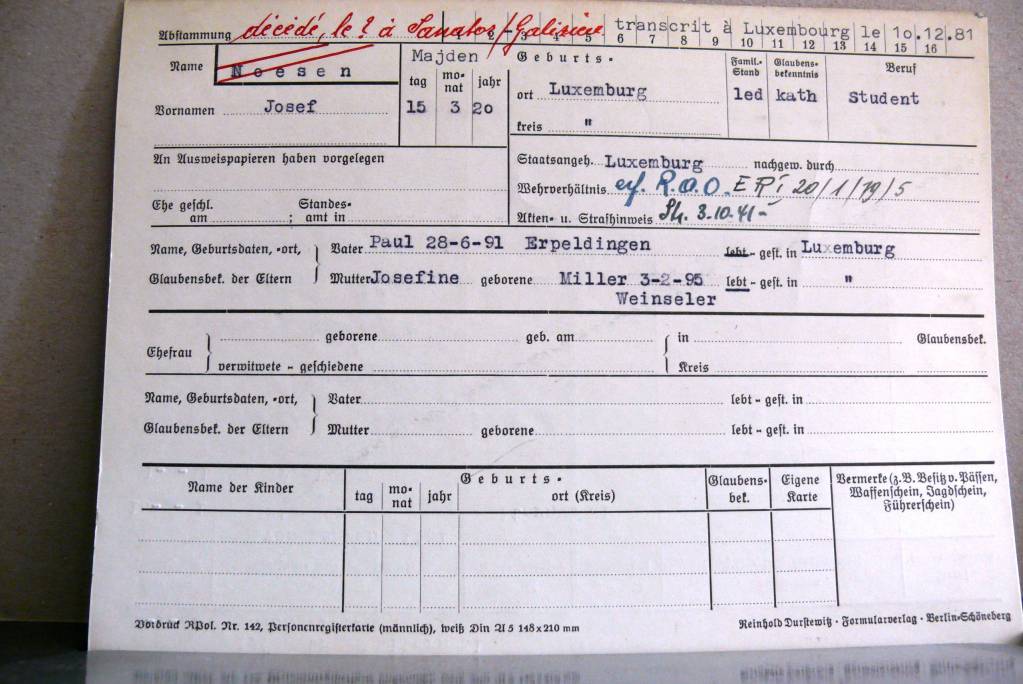 Abstammung décédé, le ? à Sanatos / Galizien transcrit à Luxembourg le 10.12.81
6 7 8 9 10 11 12 13 14 15 16
Name Noesen Majden Geburts- Famil.-Stand Glaubensbekenntnis Beruf
tag monat jahr
ort Luxemburg led kath Student
Vornamen Josef 15 3 20
kreis "
An Ausweispapieren haben vorgelegen
Staatsangeh. Luxemburg nachgew. durch
Wehrverhältnis erf. R.O.O. 20/1/19/5
Ehe geschl. am ; Standesamt in
Akten- u. Strafhinweis 3.10.41-
Name, Geburtsdaten, -ort, Vater Paul 28-6-91 Erpeldingen lebt - gest. in Luxemburg
Glaubensbek. der Eltern Mutter Josefine geborene Miller 3-2-95 lebt - gest. in "
Weinseler
geborene geb. am in Glaubensbek.
Ehefrau
verwitwete - geschiedene Kreis
Name, Geburtsdaten, -ort, Vater lebt - gest. in
Glaubensbek. der Eltern Mutter geborene lebt - gest. in
Name der Kinder Geburts- Glaubensbek. Eigene Karte Vermerke (z.B. Besitz v. Pässen, Waffenschein, Jagdschein, Führerschein)
tag monat jahr ort (Kreis)
Vordruck RPol. Nr. 142, Personenregisterkarte (männlich), weiß Din A 5 148 x 210 mm
Reinhold Durstewitz · Formularverlag · Berlin-Schöneberg